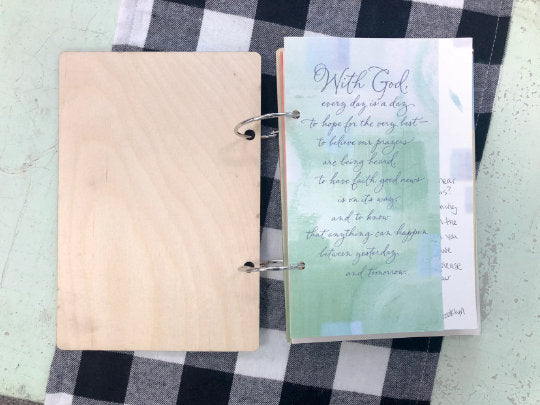 With God,
every day is a day
to hope for the very best—
to believe our prayers
are being heard,
to have faith good news
is on its way,
and to know
that anything can happen
between yesterday
and tomorrow.
near
us?
the
you
we
please
our